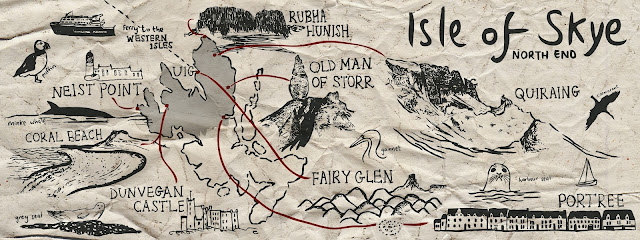 Isle of Skye
NORTH END
ferry to the
WESTERN
ISLES
RUBHA
HUNISH
puffin
UIG
OLD MAN
OF STORR
QUIRAING
NEIST POINT
minke whale
CORAL BEACH
gannet
harbour seal
FAIRY GLEN
PORTREE
DUNVEGAN
CASTLE
grey seal